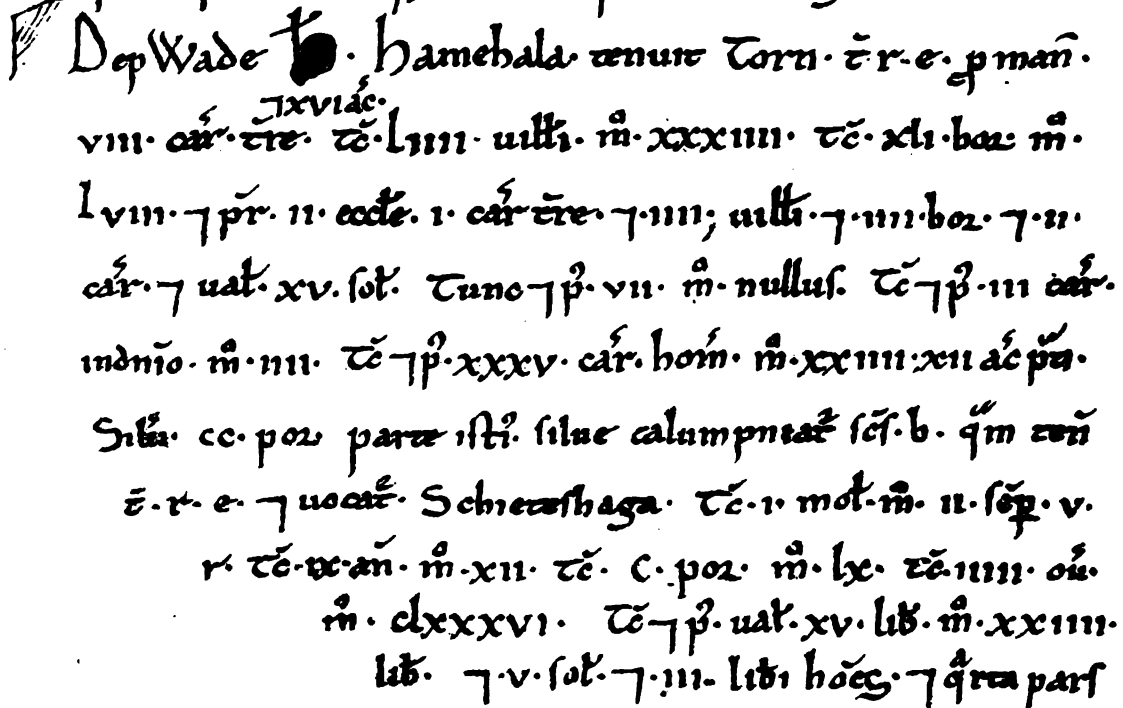 DepWade H̄. Hamehala. tenuit Torn. t̄. r. e. ꝓ man̄.
⁊ xvi ac̄.
viii. car̄. t̄re. tc̄. Liiii. uilłi. m̊. xxxiiii. tc̄. xli. bor. m̊.
Lviii. ⁊ p̄r. ii. eccłe. i. car̄ t̄re. ⁊. iiii; uilłi. ⁊. iiii. bor. ⁊. ii.
car̄. ⁊ uał. xv. soł. Tunc ⁊ p̾. vii. m̊. nullus. Tc̄ ⁊ p̾. iii car̄.
indn̄io. m̊. iiii. Tc̄ ⁊ p̾. xxxv. car̄. hom̄. m̊. xxiiii. xii ac̄ p̄ti.
Silū. cc. por parte isti᾽. silue calumpniat᷑ sc̄s. b. qͣm ten̄
t̄. r. e. ⁊ uocat᷑. Schieteshaga. Tc̄. i. moł. m̊. ii. sēp. v.
r. tc̄. ix. an̄. m̊. xii. tc̄. C. por. m̊. lx. tc̄. iiii. ou̾.
m̊. clxxxvi. Tc̄ ⁊ p̾. uał. xv. lib̄. m̊. xxiiii.
lib̄. ⁊. v. soł. ⁊. iii. lib̄i hōes. ⁊ qͣrta pars